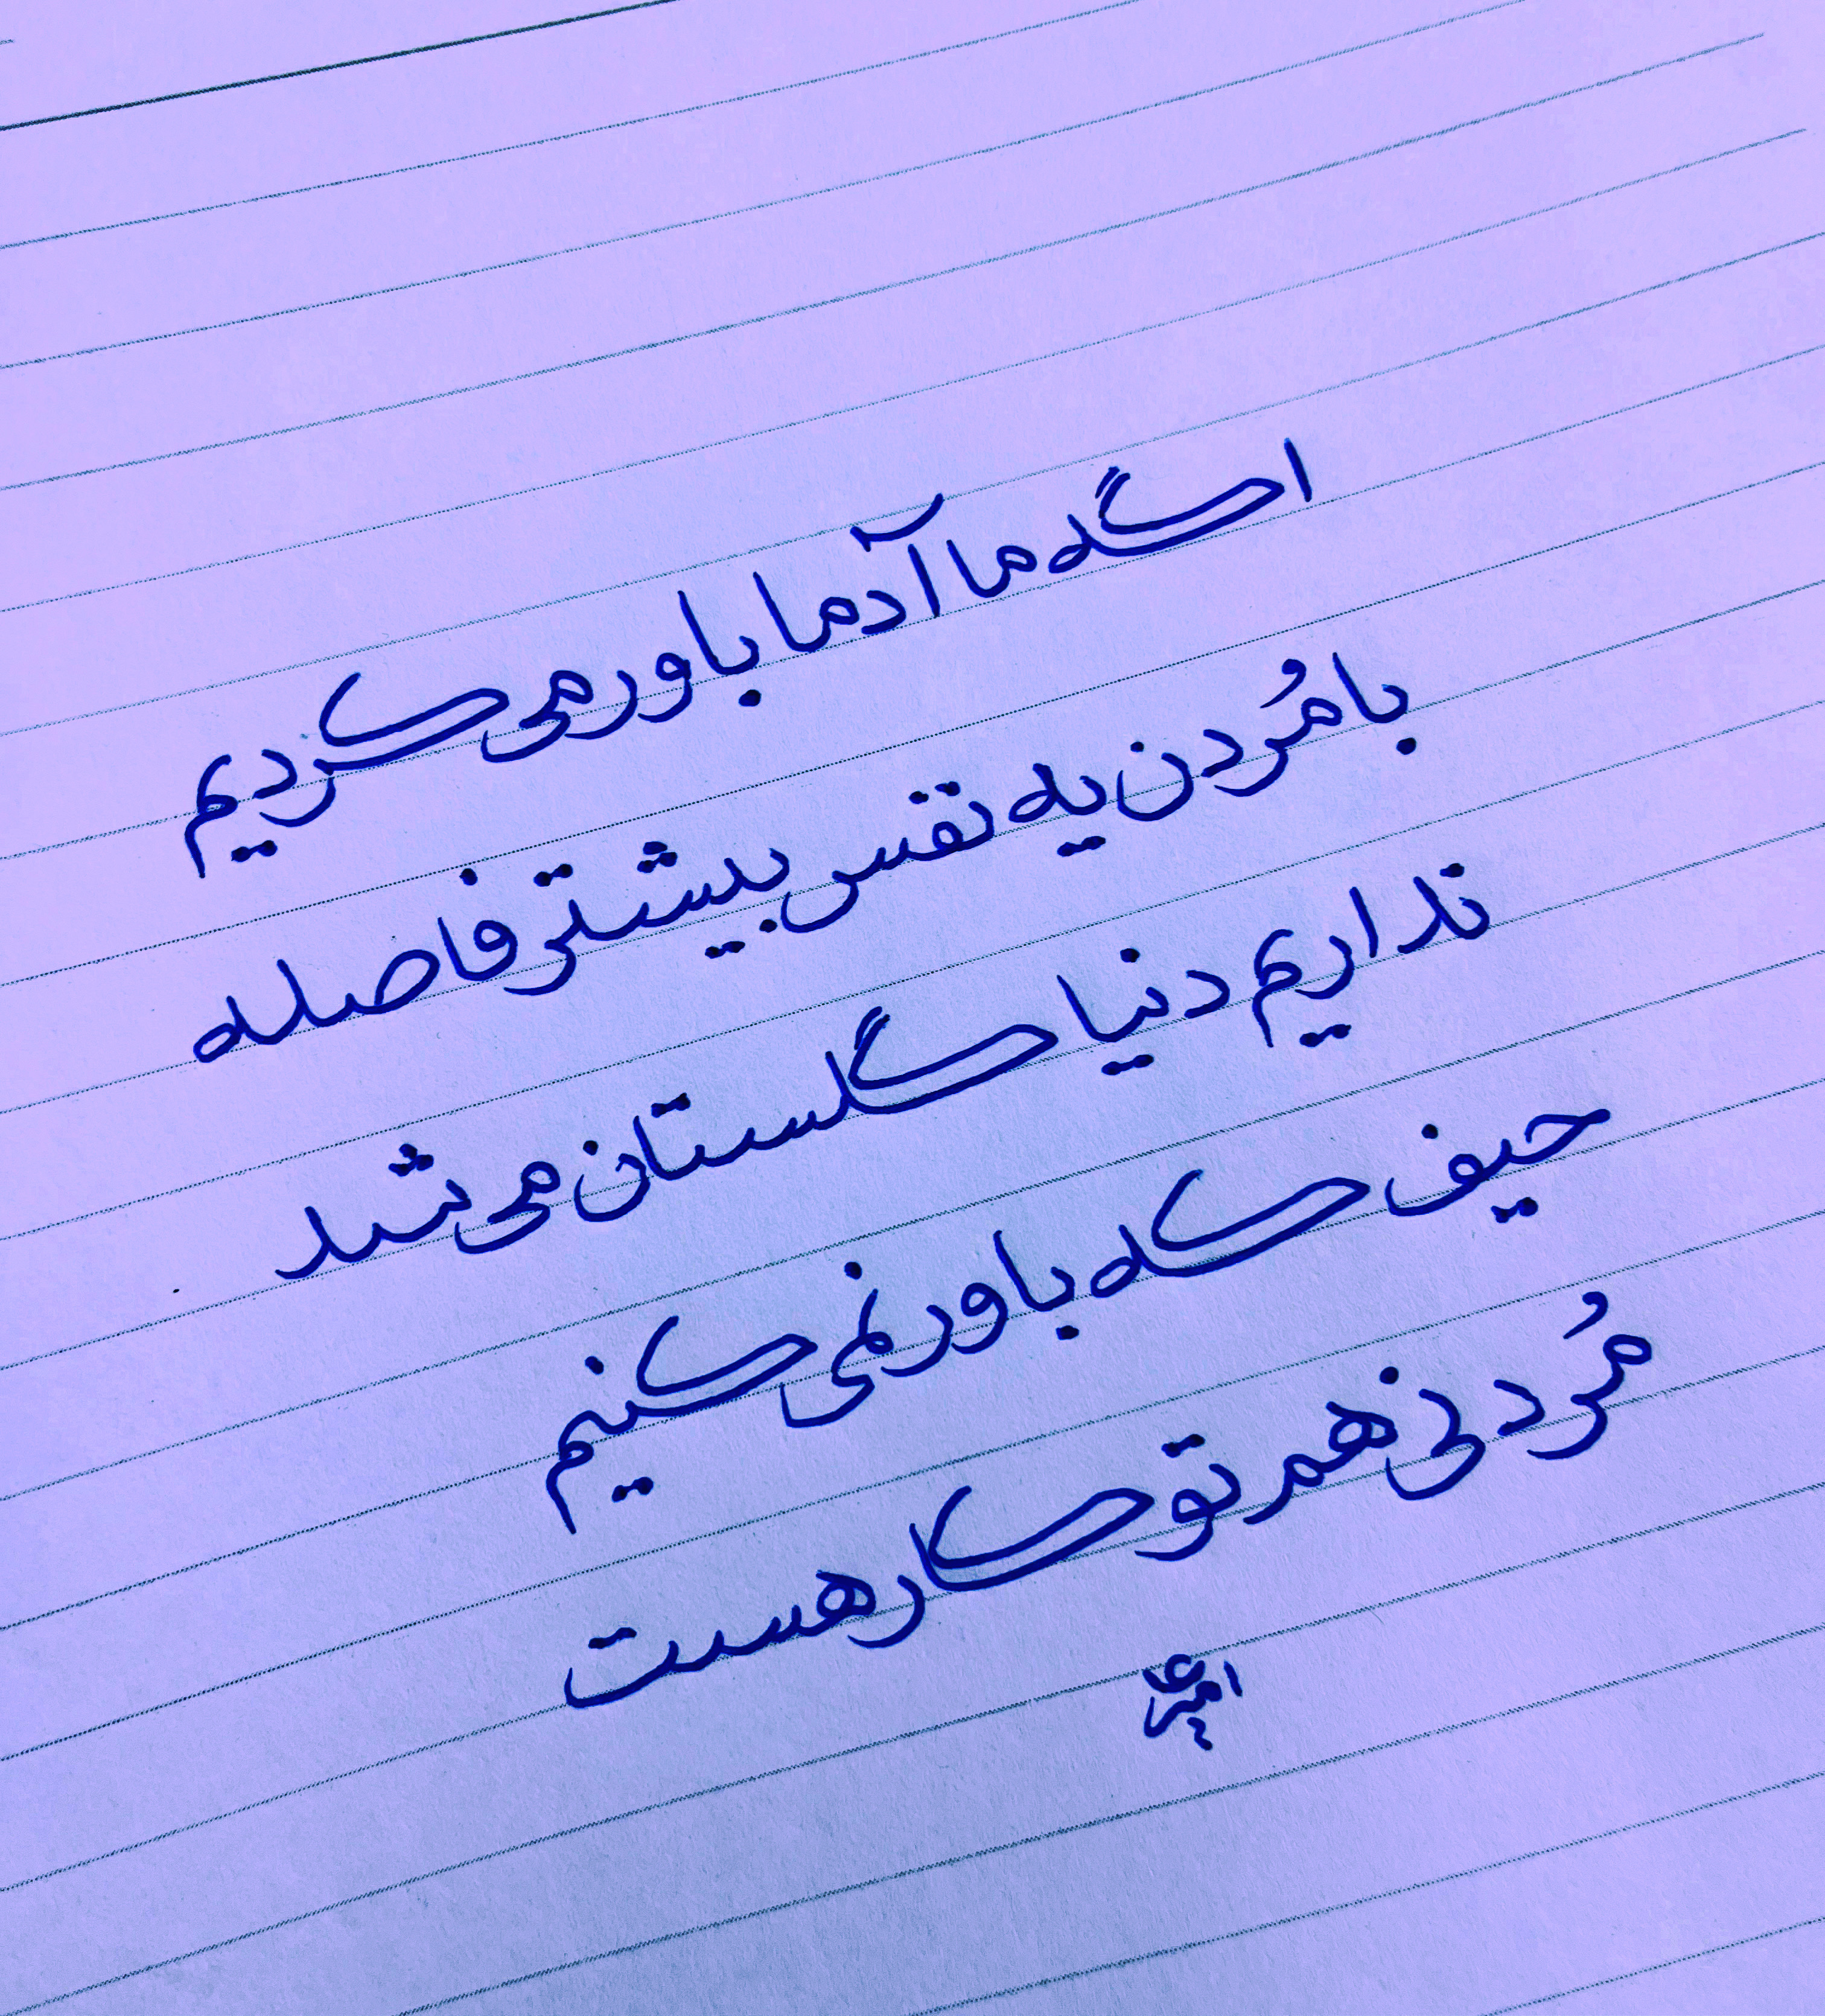 اگه ما آدما باور می کردیم
با مُردن یه نفس بیشتر فاصله
نداریم دنیا گلستان می شد
حیف که باور نمی کنیم
مُردنی هم تو کار هست